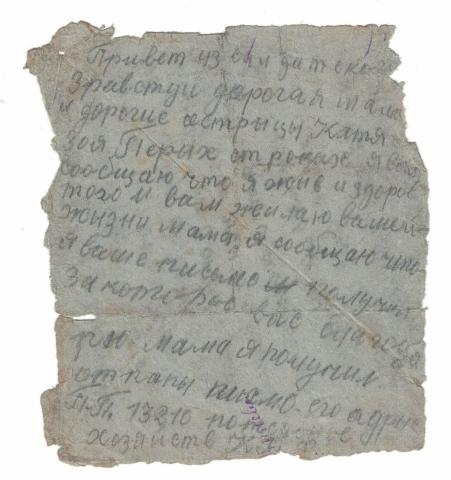 Привет из
Зравствуй дарогая мама
и дорогие сестрицы Катя
Зоя Перых строках я вам
сообщаю что я жив и здоров
того и вам жилаю вашей
жизни мама я сообщаю что
я ваше письмо получил
за которо вас благода
рю. мама я получил
от папы писмо его адрис
П.П. 13210
хозяйств